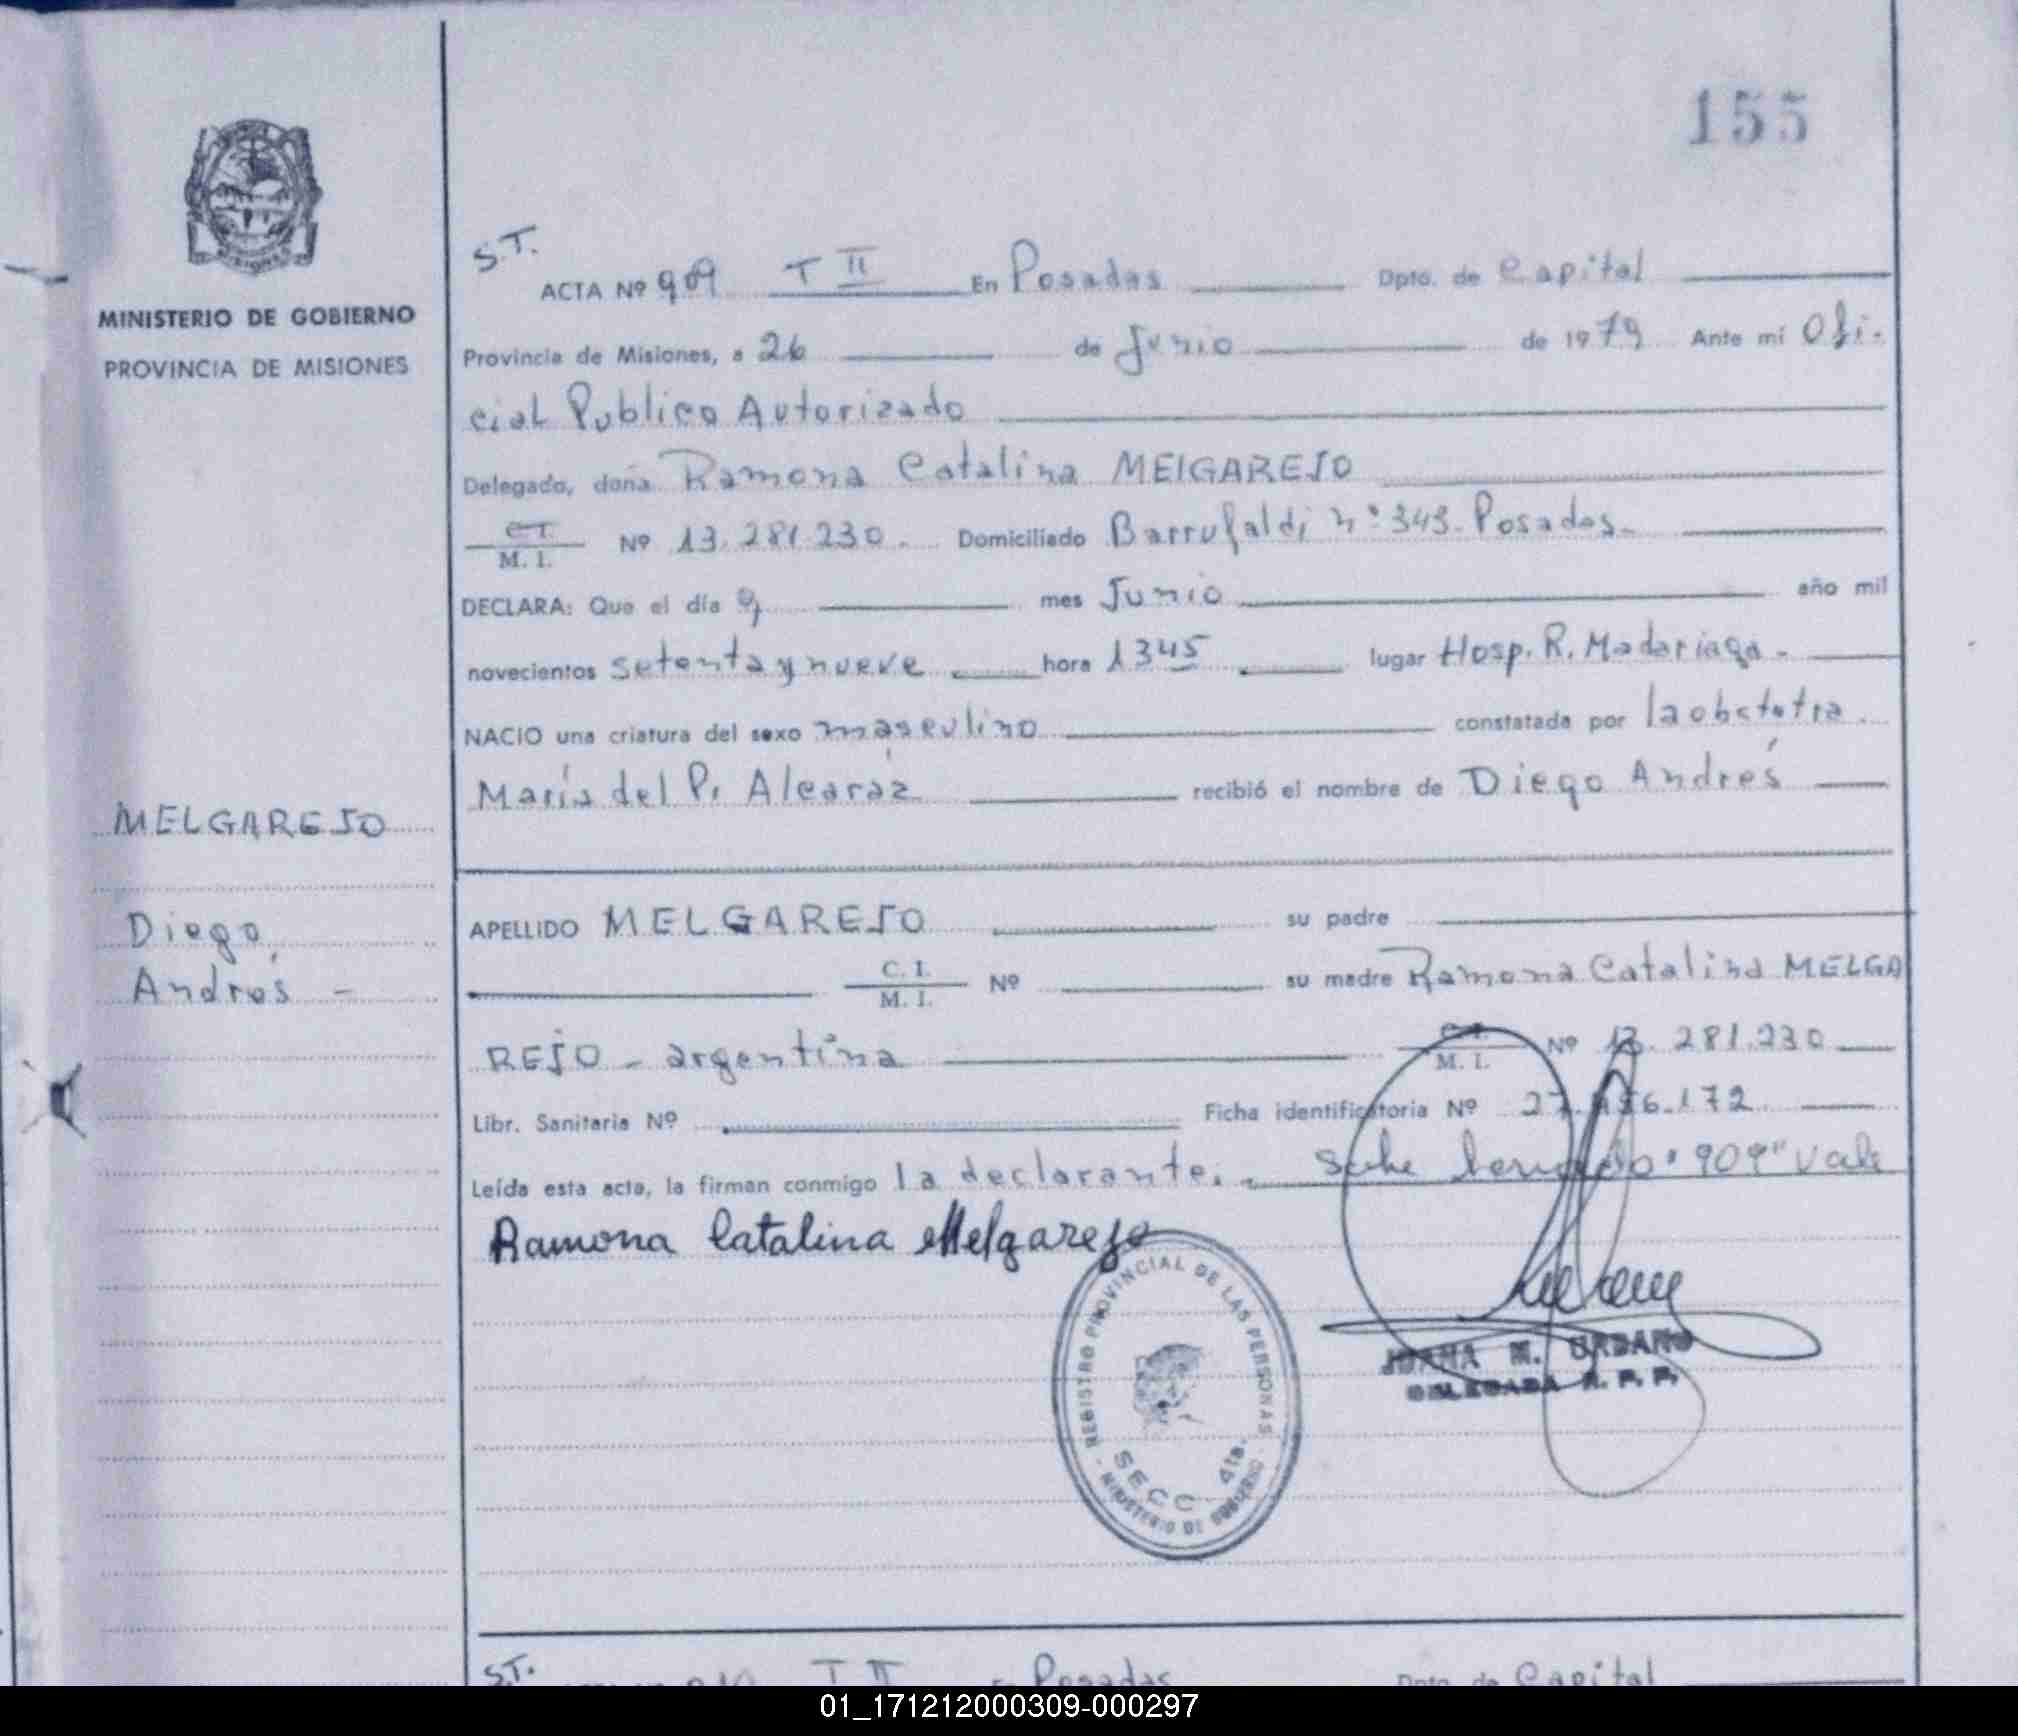 155
MINISTERIO DE GOBIERNO
PROVINCIA DE MISIONES
S.T.
ACTA Nº 909 T II En Posadas Dpto. de Capital
Provincia de Misiones, a 26 de Junio de 1979 Ante mí Ofi-
cial Publico Autorizado
Delegado, doña Ramona Catalina MElGAREJO
C.I. M. I. Nº 13.281.230. Domiciliado Barrufaldi nº 343. Posadas.
DECLARA: Que el día 9 mes Junio año mil
novecientos setenta y nueve hora 1345 lugar Hosp. R. Madariaga.
NACIO una criatura del sexo masculino constatada por la obstetra.
María del P. Alcaráz recibió el nombre de Diego Andrés
MELGAREJO
Diego
Andrés -
APELLIDO MELGAREJO su padre
C. I. M. I. Nº su madre Ramona Catalina MELGA
REJO - argentina C.I. M. I. Nº 13.281.230
Libr. Sanitaria Nº Ficha identificatoria Nº 27. 172
Leída esta acta, la firman conmigo la declarante. "909" Vale
Ramona Catalina Melgarejo
REGISTRO PROVINCIAL DE LAS PERSONAS
SECC. 4ta.
MINISTERIO DE GOBIERNO
JUANA M. URBANO
DELEGADA R. P. P.
S.T.
T II Posadas Dpto. de Capital
01_171212000309-000297